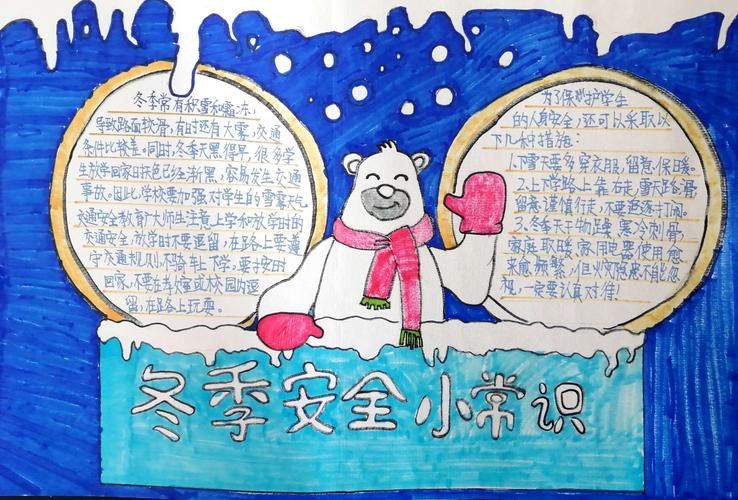 冬季常有积雪和霜冻,
导致路面较滑,有时还有大雾,交通
条件比较差。同时,冬季天黑得早,很多学
生放学回家时天色已经渐黑,容易发生交通
事故。因此,学校要加强对学生的雪雾天气
交通安全教育,广大师生注意上学和放学时的
交通安全,放学时不要逗留,在路上要遵
守交通规则,不骑车上下学,要按时
回家,不要在教室或校园内逗
留,在路上玩耍。
为了保护学生
的人身安全,还可以采取以
下几种措施:
1.下雪天要多穿衣服,留意保暖。
2.上下学路上靠右走,雪天路滑
留意谨慎行走,不要追逐打闹。
3、冬季天干物燥,寒冷刺骨
家庭取暖,家用电器使用愈
来愈频繁,但火灾隐患不能忽
视,一定要认真对待。
冬季安全小常识